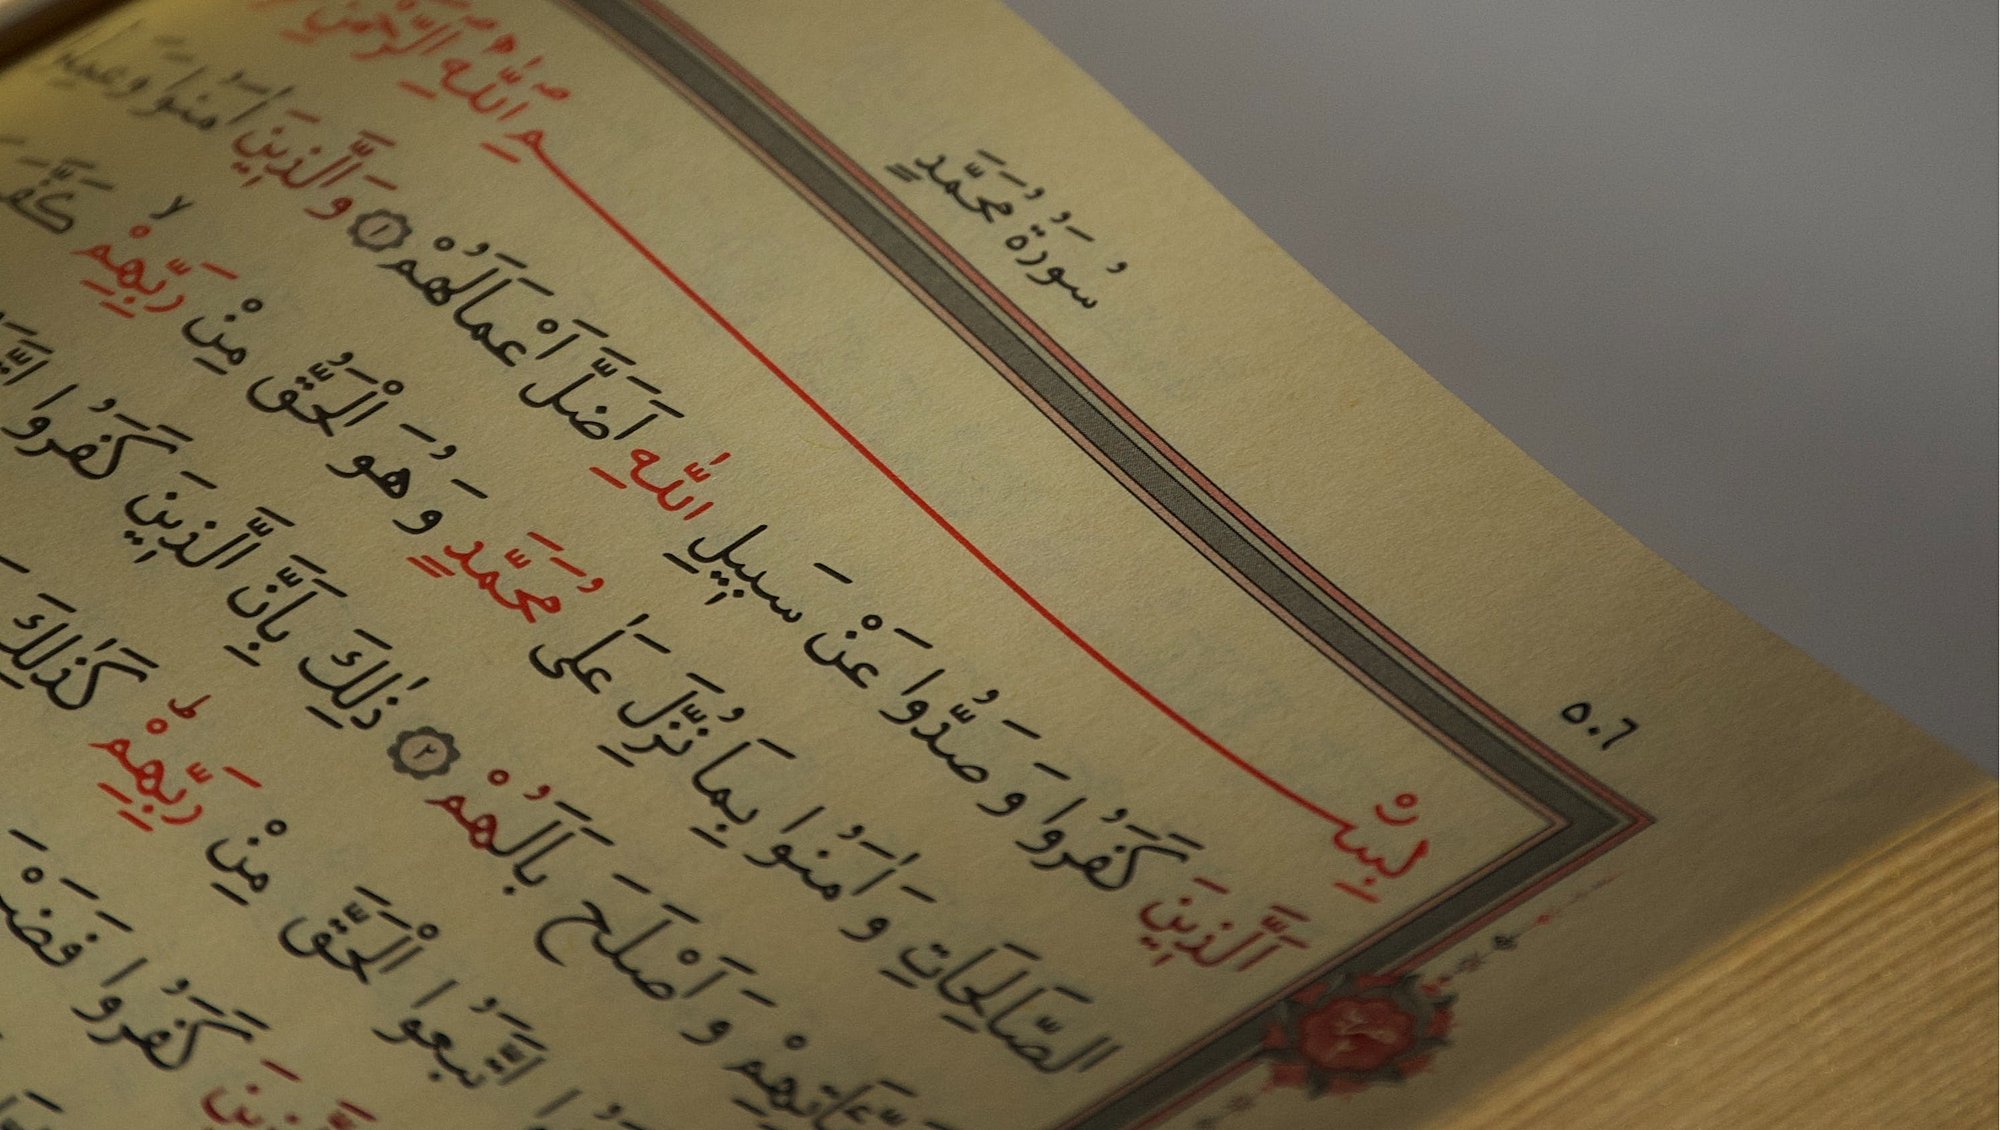 سُورَةُ مُحَمَّدٍ
٥٠٦
بِسْمِ اللّٰهِ الرَّحْمٰنِ
اَلَّذِينَ كَفَرُوا وَصَدُّوا عَنْ سَبِيلِ اللّٰهِ اَضَلَّ اَعْمَالَهُمْ ١ وَالَّذِينَ اٰمَنُوا
الصَّالِحَاتِ وَاٰمَنُوا بِمَا نُزِّلَ عَلٰى مُحَمَّدٍ وَهُوَ الْحَقُّ مِنْ رَبِّهِمْ ۙ كَفَّرَ
وَاَصْلَحَ بَالَهُمْ ٢ ذٰلِكَ بِاَنَّ الَّذِينَ كَفَرُوا
اتَّبَعُوا الْحَقَّ مِنْ رَبِّهِمْ ۜؕ كَذٰلِكَ
كَفَرُوا